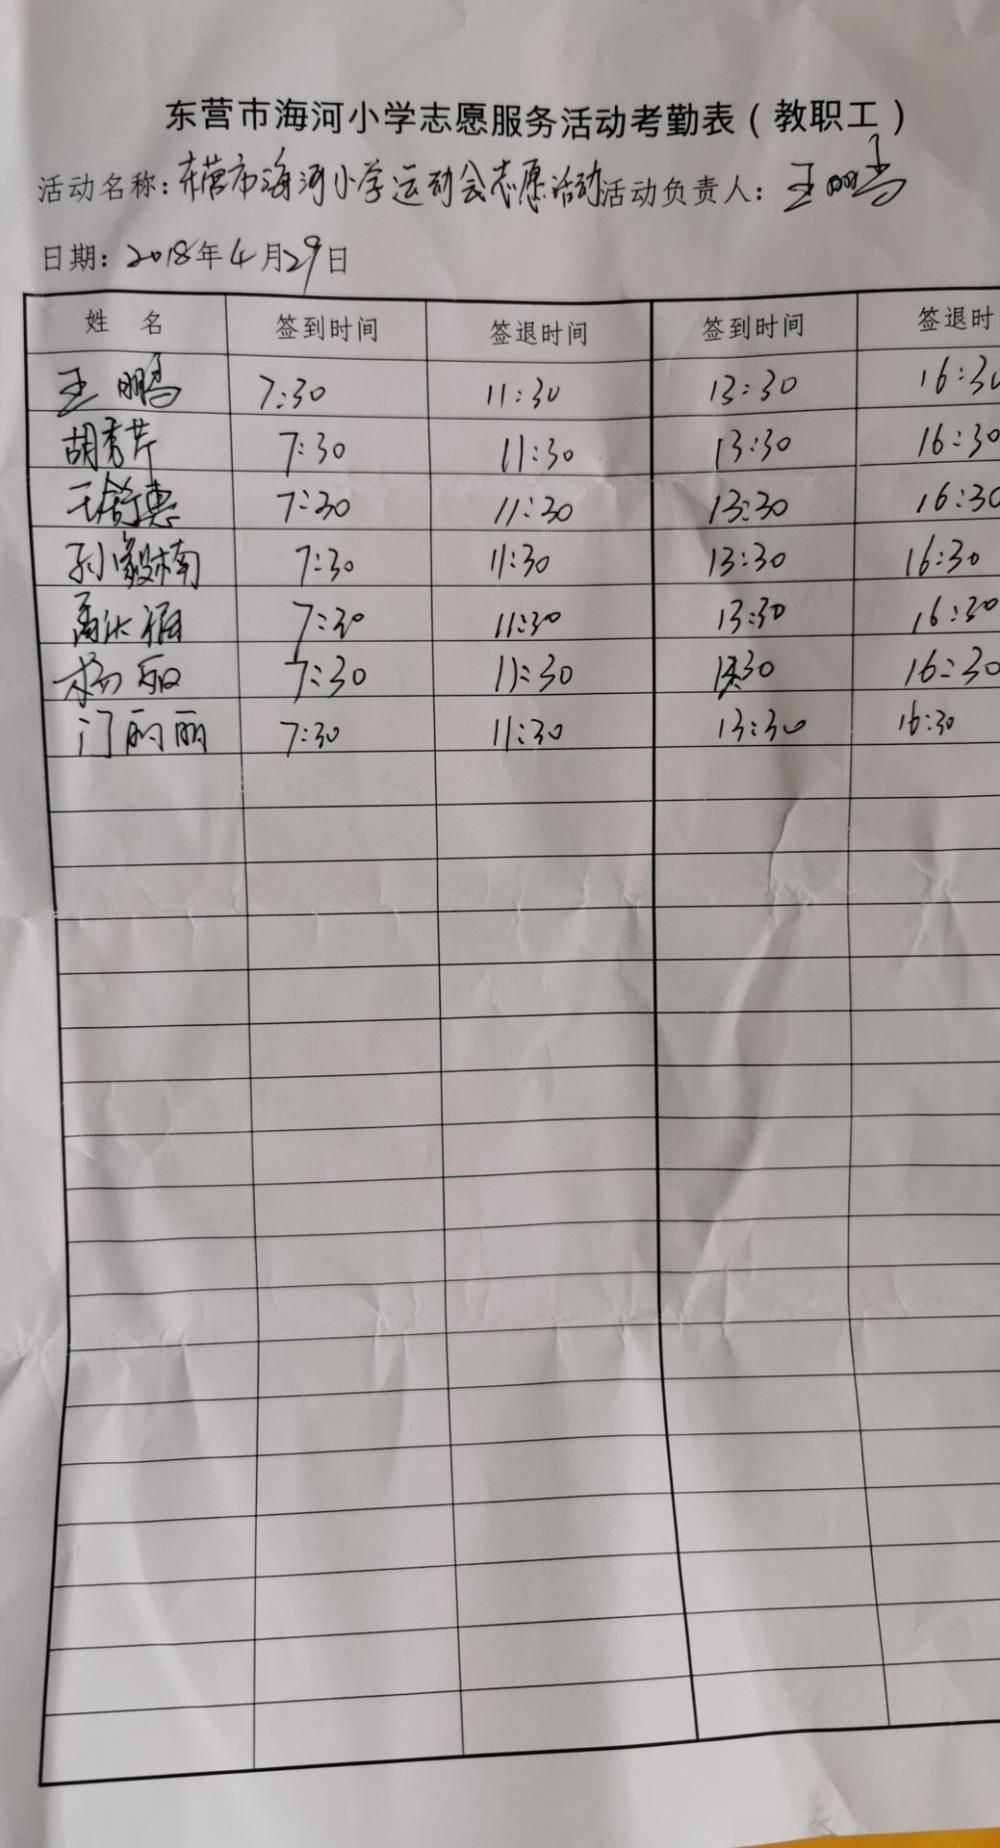 东营市海河小学志愿服务活动考勤表（教职工）
活动名称：东营市海河小学运动会志愿活动 活动负责人：王鹏
日期：2018年4月29日
姓 名 签到时间 签退时间 签到时间 签退时
王鹏 7:30 11:30 13:30 16:30
胡秀芹 7:30 11:30 13:30 16:30
王舒惠 7:30 11:30 13:30 16:30
孙毅楠 7:30 11:30 13:30 16:30
7:30 11:30 13:30 16:30
杨丽 7:30 11:30 13:30 16:30
门丽丽 7:30 11:30 13:30 16:30